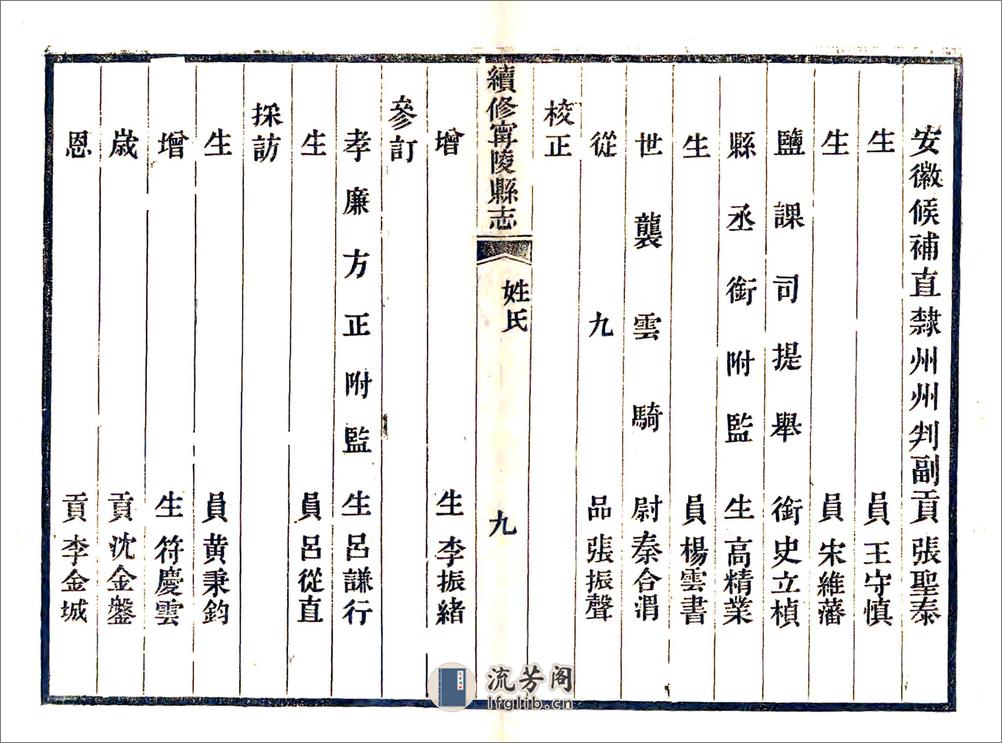 安徽候補直隸州州判副貢張聖泰
生員王守慎
生員宋維藩
鹽課司提舉銜史立楨
縣丞銜附監生高精業
生員楊雲書
世襲雲騎尉秦合渭
從九品張振聲
校正
續修寧陵縣志
姓氏
九
增生李振緒
參訂
孝廉方正附監生呂謙行
生員呂從直
採訪
生員黃秉鈞
增生符慶雲
歲貢沈金鑿
恩貢李金城
流芳阁
lfglib.cn